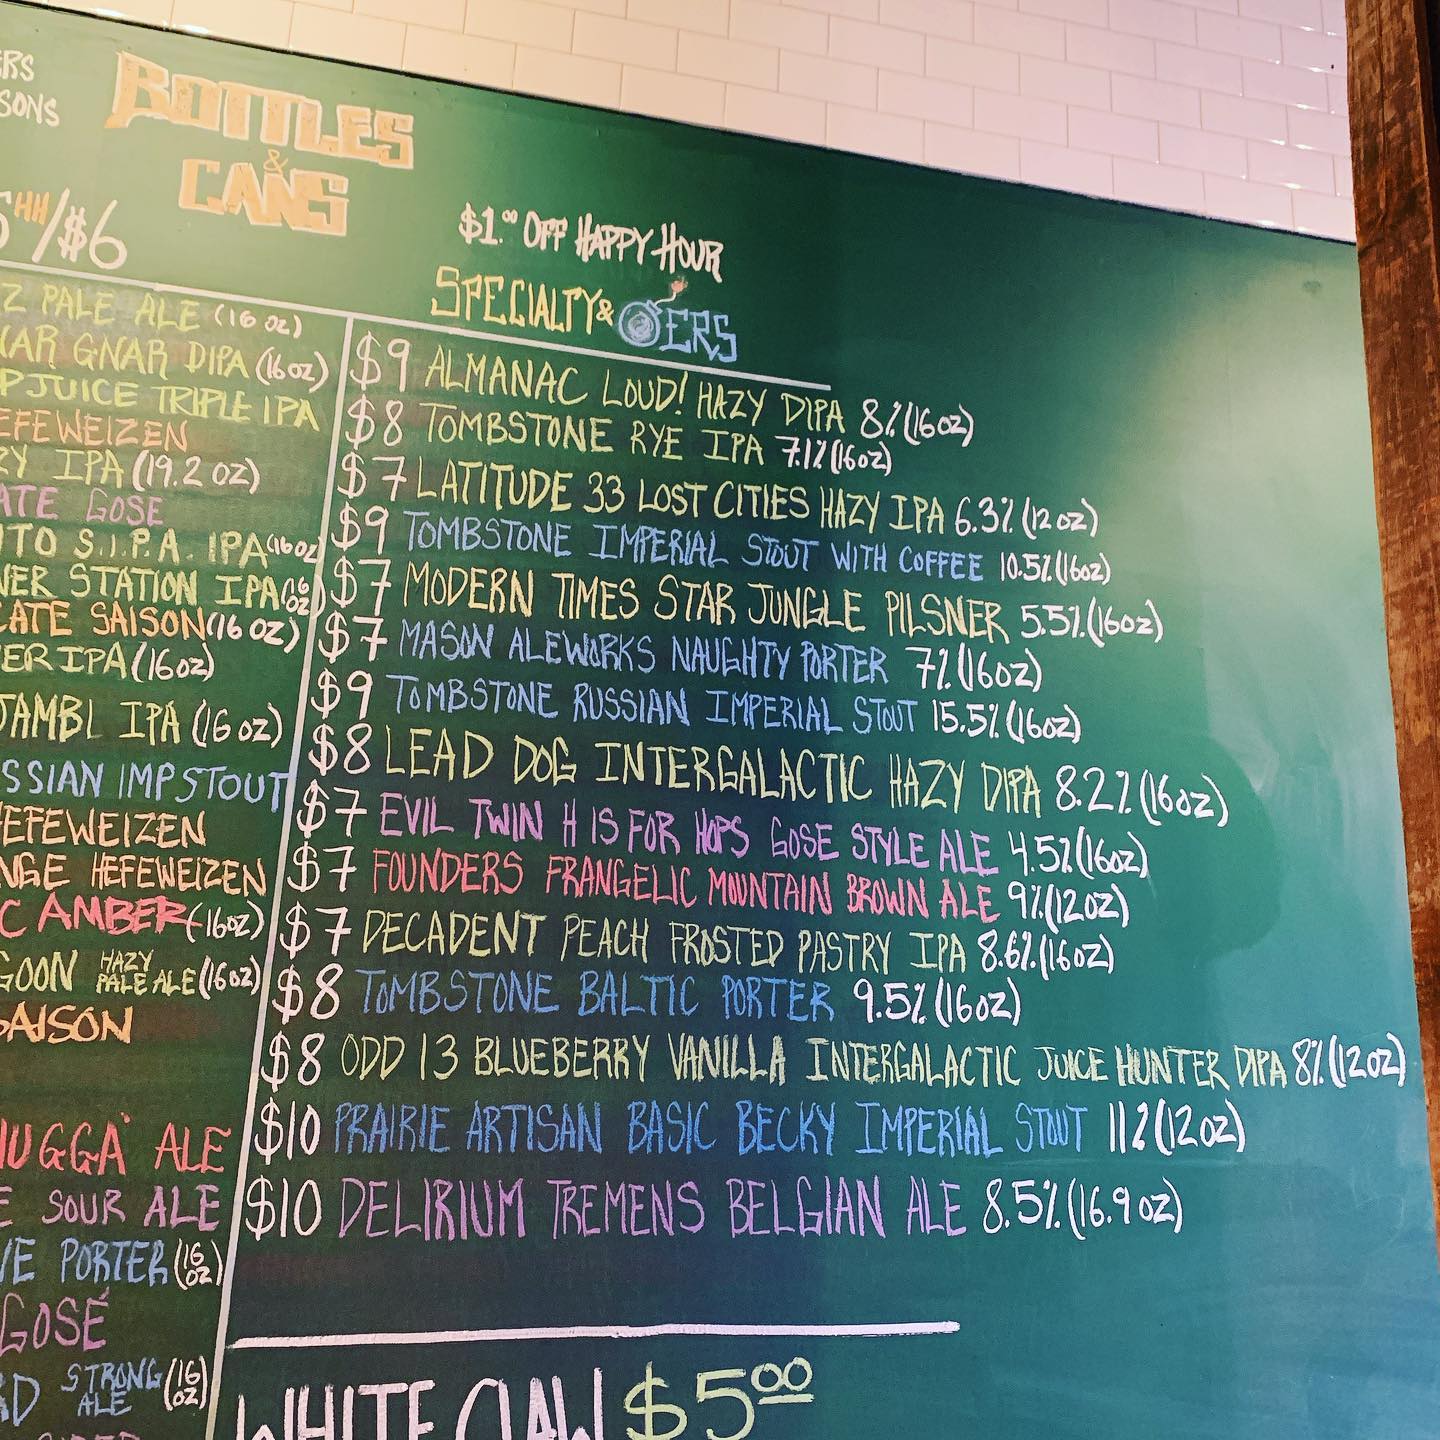 ERS
SONS
BOTTLES
&
CANS
HH/$6
Z PALE ALE (16 OZ)
GNAR DIPA (16OZ)
JUICE TRIPLE IPA
EFEWEIZEN
ZY IPA (19.2 OZ)
ATE GOSE
ITO S.I.P.A. IPA (16OZ)
NER STATION IPA (16 OZ)
CATE SAISON (16 OZ)
ER IPA (16OZ)
JAMBL IPA (16 OZ)
SSIAN IMP STOUT
HEFEWEIZEN
NGE HEFEWEIZEN
C AMBER (16OZ)
GOON HAZY PALE ALE (16OZ)
SAISON
NUGGA' ALE
E SOUR ALE
VE PORTER (16 OZ)
GOSÉ
AD STRONG ALE (16 OZ)
$1.00 OFF HAPPY HOUR
SPECIALTY & ERS
$9 ALMANAC LOUD! HAZY DIPA 8% (16OZ)
$8 TOMBSTONE RYE IPA 7.1% (16OZ)
$7 LATITUDE 33 LOST CITIES HAZY IPA 6.3% (12 OZ)
$9 TOMBSTONE IMPERIAL STOUT WITH COFFEE 10.5% (16OZ)
$7 MODERN TIMES STAR JUNGLE PILSNER 5.5% (16OZ)
$7 MASON ALEWORKS NAUGHTY PORTER 7% (16OZ)
$9 TOMBSTONE RUSSIAN IMPERIAL STOUT 15.5% (16OZ)
$8 LEAD DOG INTERGALACTIC HAZY DIPA 8.2% (16OZ)
$7 EVIL TWIN H IS FOR HOPS GOSE STYLE ALE 4.5% (16OZ)
$7 FOUNDERS FRANGELIC MOUNTAIN BROWN ALE 9% (12OZ)
$7 DECADENT PEACH FROSTED PASTRY IPA 8.6% (16OZ)
$8 TOMBSTONE BALTIC PORTER 9.5% (16OZ)
$8 ODD 13 BLUEBERRY VANILLA INTERGALACTIC JUICE HUNTER DIPA 8% (12OZ)
$10 PRAIRIE ARTISAN BASIC BECKY IMPERIAL STOUT 11% (12OZ)
$10 DELIRIUM TREMENS BELGIAN ALE 8.5% (16.9 OZ)
WHITE CLAW $5.00